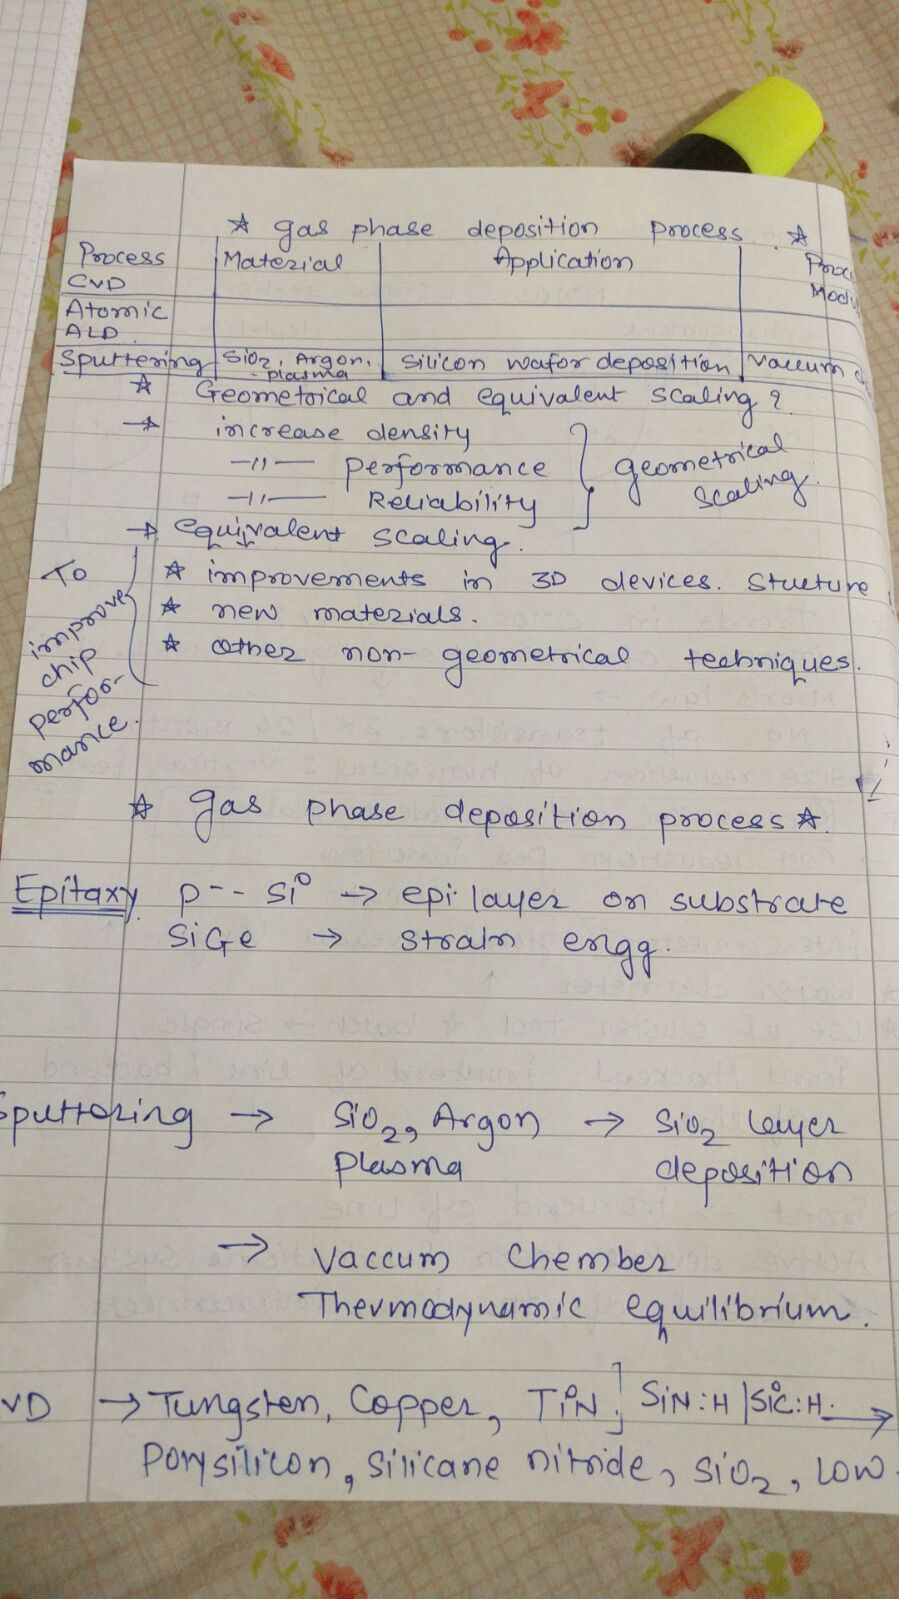 ☆ gas phase deposition process ☆
Process Material Application
CVD
Atomic
ALD
Sputtering SiO2, Argon, plasma Silicon wafor deposition Vaccum
☆ Geometrical and equivalent scaling?
→ increase density
-11- Performance
-11- Reliability
geometrical scaling.
→ equivalent scaling.
To improve chip perfor-mance.
☆ improvements in 3D devices. Stucture
☆ new materials.
☆ other non-geometrical techniques.
☆ gas phase deposition process ☆.
Epitaxy p-- Si → epi layer on substrate
SiGe → strain engg.
Sputtering → SiO2, Argon → SiO2 layer
plasma deposition
→ Vaccum Chember
Thermodynamic equilibrium.
VD → Tungsten, Copper, TiN, SiN:H | SiC:H. →
Porysilicon, silicane nitride, SiO2, Low